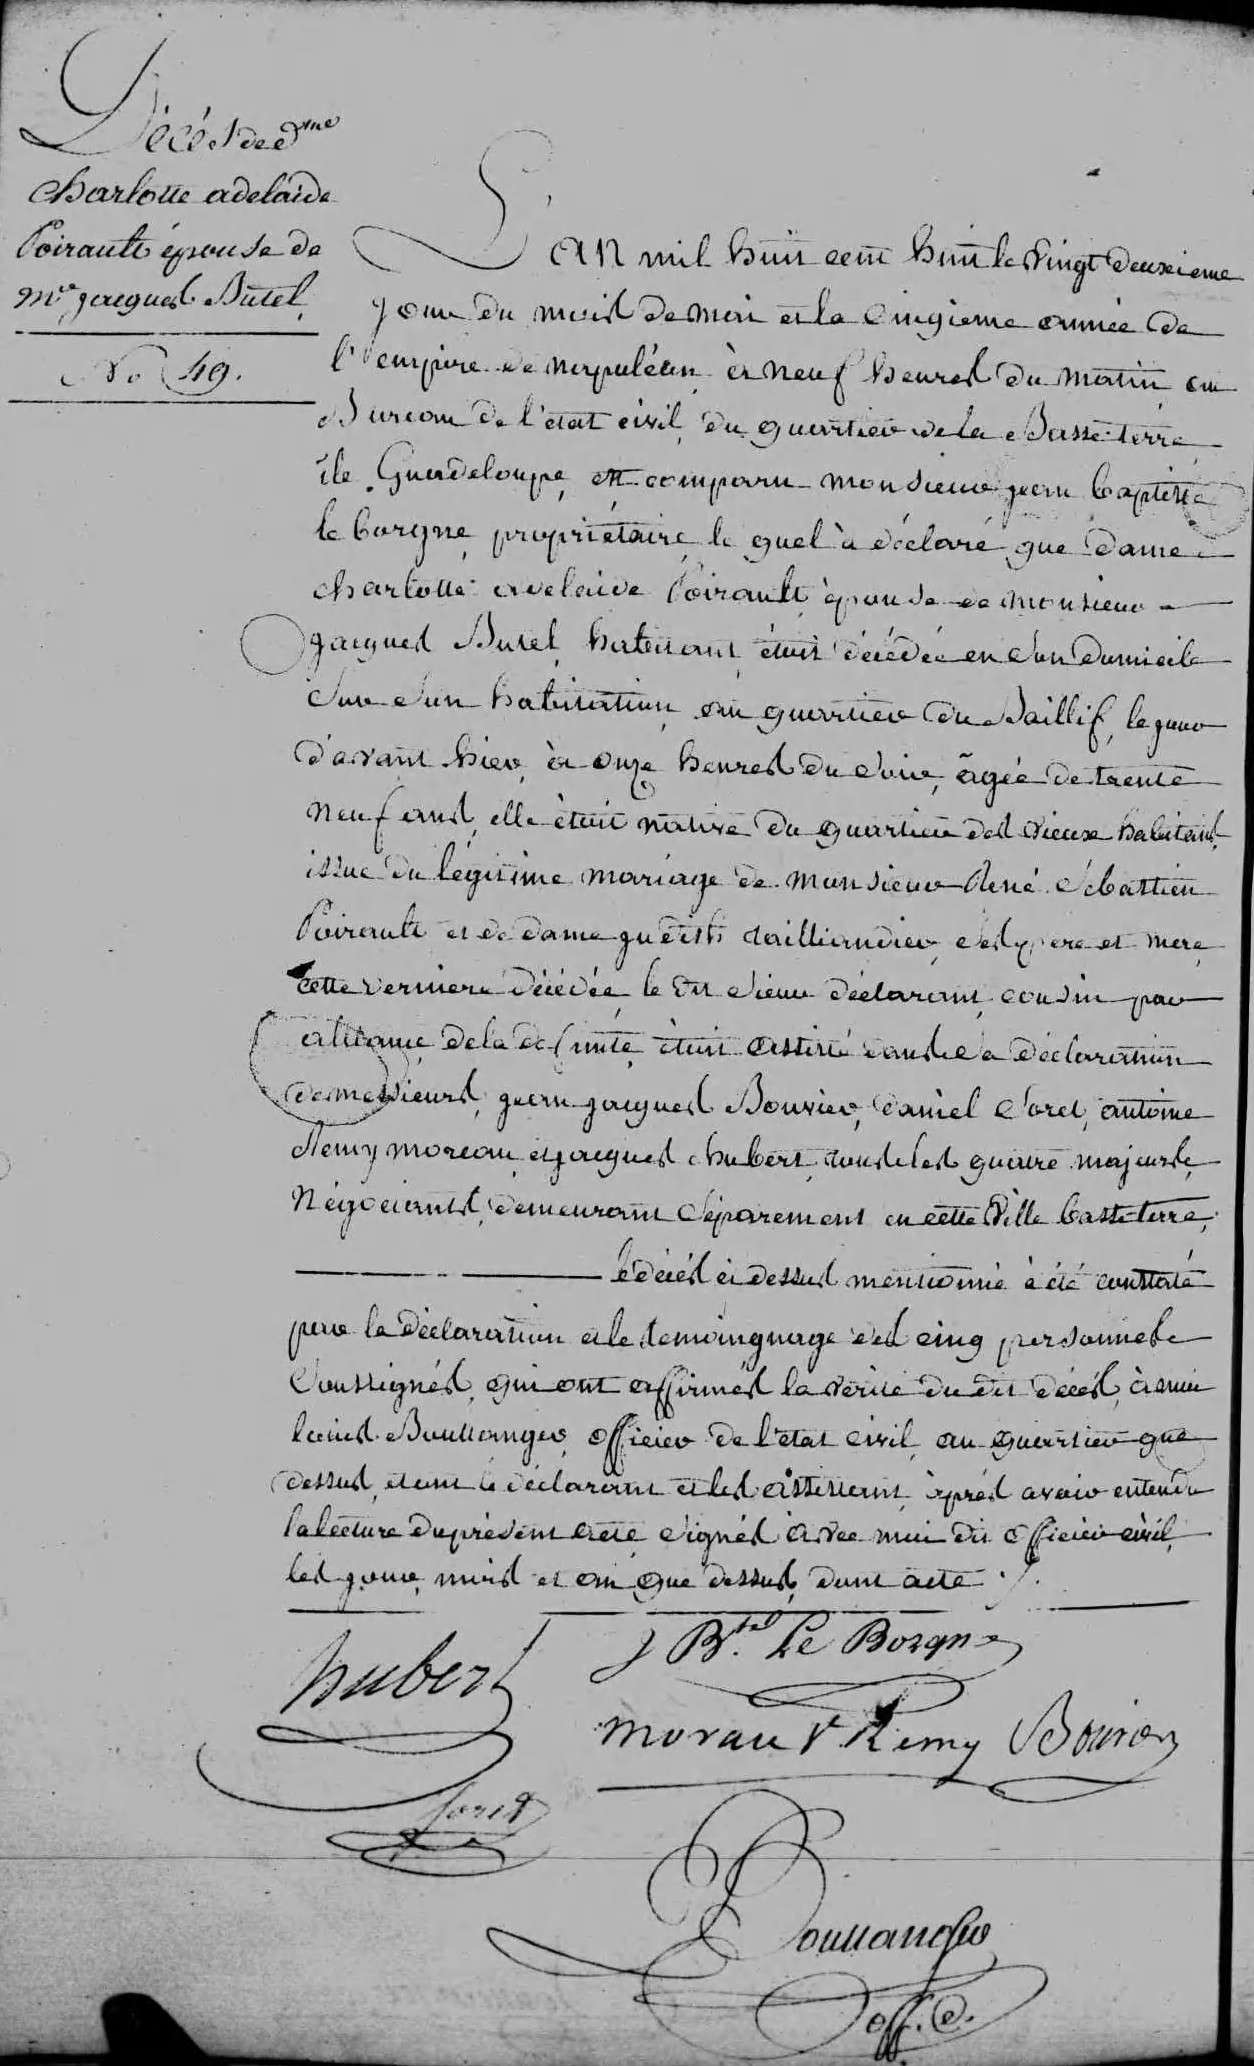 Décés de d.me
charlotte adelaïde
Poirault épouse de
Mr. jacques Butel,
No. 49.
L'an mil huit cent huit le vingt deuxieme
jour du mois de mai et la cinqieme année de
l'empire de napoléon à neuf heures du matin au
Bureau de l'état civil du quartier de la Basse-terre
île Guadeloupe, est comparu monsieur jean baptiste
le borgne, propriétaire, le quel à déclaré que dame
charlotte adelaïde Poirault épouse de monsieur
jacques Butel habitant étoit décédée en son domicile
sur son habitation au quartier du Baillif, le jour
d'avant hier, à onze heures du soir, âgée de trente
neuf ans, elle étoit native du quartier des vieux habitans,
issue du légitime mariage de monsieur René Sébastien
Poirault et de dame judith tailliandier, ses pere et mere
cette derniere décédée, le dit sieur déclarant, cousin par
alliance de la defunte étoit assisté dans sa déclaration
de messieurs, jean jacques Bourier, daniel Soret, antoine
Remy moreau, et jacques hubert, tous les quatre majeurs,
Négociants, demeurant séparement en cette ville basse-terre,
le décés ci dessus mentionné à été constaté
par la déclaration et le temoingnage des cinq personnes
soussignés, qui ont affirmés la vérité du dit décés, à moi
louis Boullanger, officier de l'état civil, au quartier que
dessus, et ont le déclarant et les assistant, après avoir entendu
la lecture du présent acte signés avec moi dit officier civil,
les jour, mois et an que dessus, dont acte ./.
hubert
J Bte. Le Borgne
Morau Remy Bourier
Soret
Boullanger
off. C.